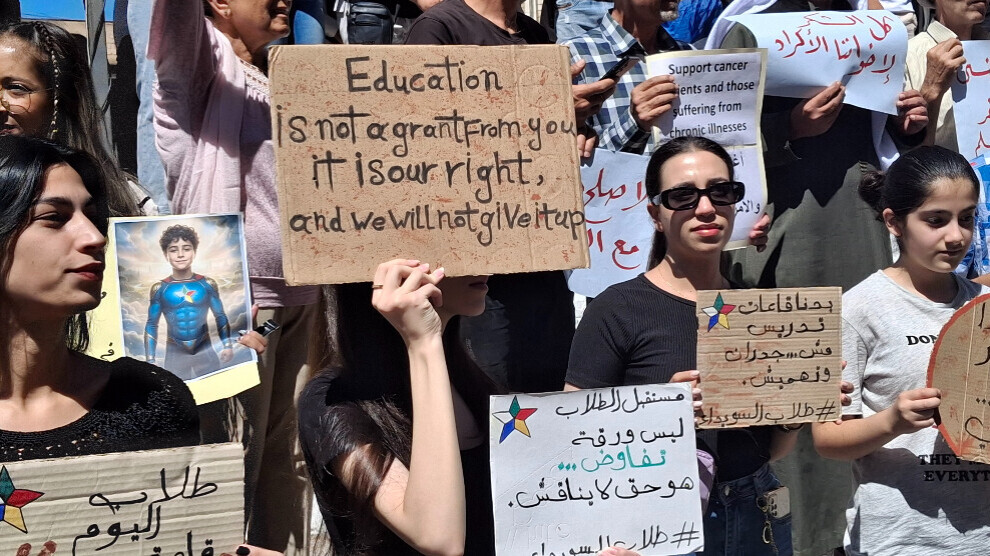 Education
is not a grant from you
it is our right,
and we will not give it up
Support cancer
ients and those
suffering from
chronic illnesses
كل الشكر
لإخواتنا الأكراد
لا صلح
مع
بدنا قاعات
تدريس
مش...جدران
وتهميش.
#طلاب السويداء
مستقبل الطلاب
ليس ورقة
تفاوض...
هو حق لا يناقش.
#طلاب السويداء
طلاب
اليوم
DON
THEY
EVERY